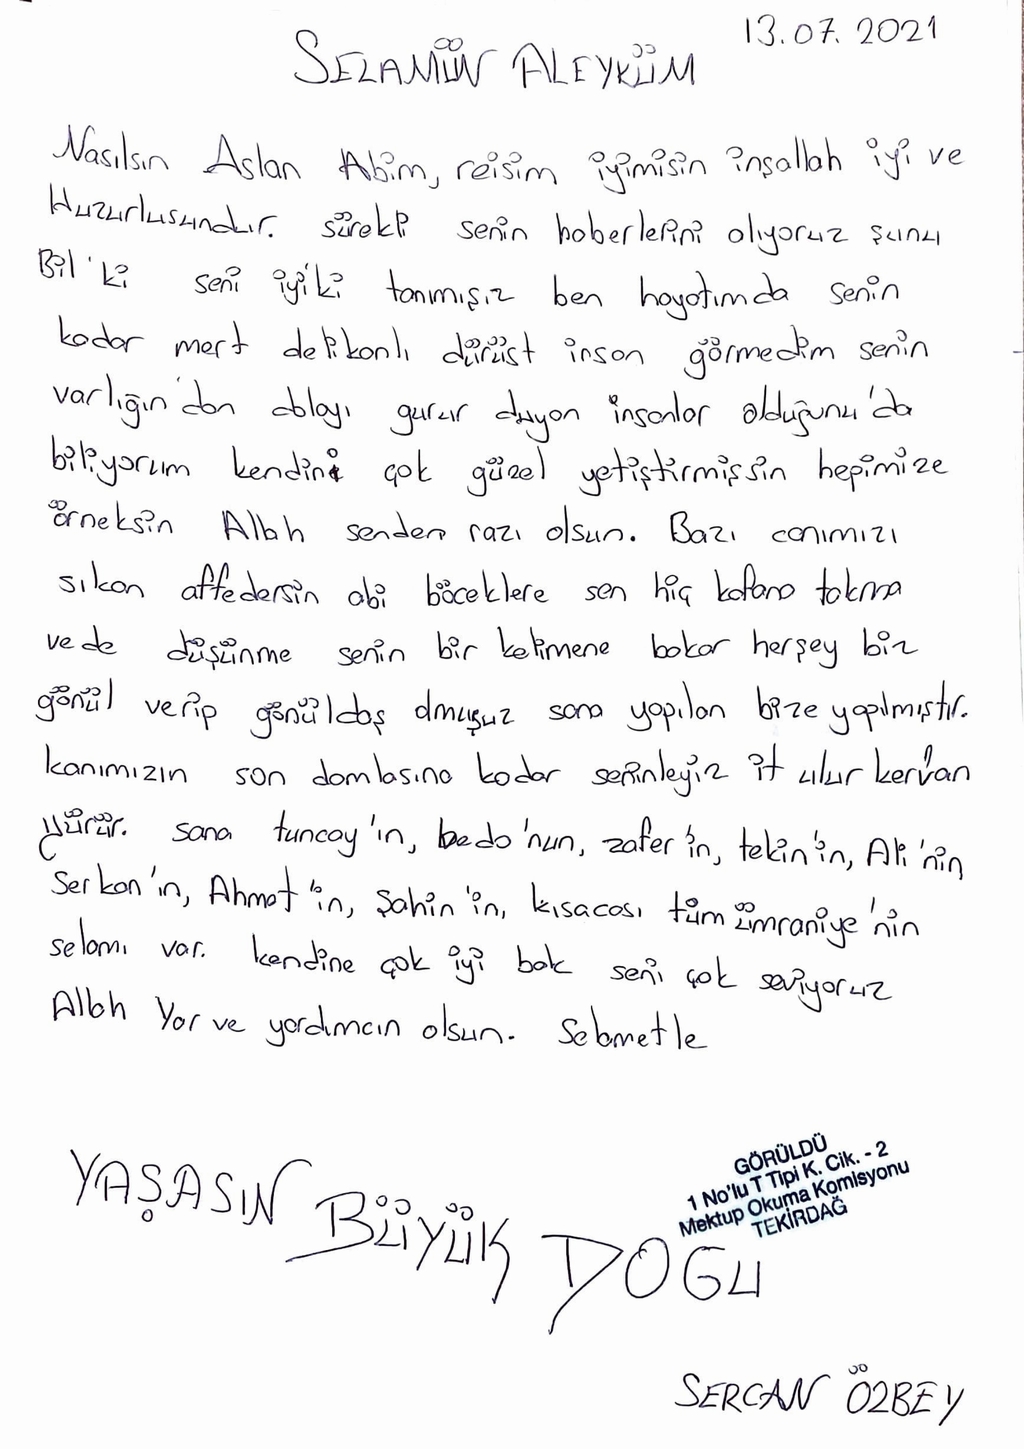 13.07.2021
SELAMÜN ALEYKÜM
Nasılsın Aslan Abim, reisim iyimisin inşallah iyi ve
Huzurlusundur. sürekli senin haberlerini alıyoruz şunu
Bil'ki seni iyi'ki tanımışız ben hayatımda senin
kadar mert delikanlı dürüst insan görmedim senin
varlığın'dan dolayı gurur duyan insanlar olduğunu'da
biliyorum kendini çok güzel yetiştirmişsin hepimize
örneksin Allah senden razı olsun. Bazı canımızı
sıkan affedersin abi böceklere sen hiç kafana takma
ve de düşünme senin bir kelimene bakar herşey biz
gönül verip gönüldaş olmuşuz sana yapılan bize yapılmıştır.
kanımızın son damlasına kadar seninleyiz it ulur kervan
yürür. sana tuncay'ın, bedo'nun, zafer'in, tekin'in, Ali'nin
Serkan'ın, Ahmet'in, Şahin'in, kısacası tüm ümraniye'nin
selamı var. kendine çok iyi bak seni çok seviyoruz
Allah Yar ve yardımcın olsun. Selametle
YAŞASIN BÜYÜK DOGU
GÖRÜLDÜ
1 No'lu T Tipi K. Cik. - 2
Mektup Okuma Komisyonu
TEKİRDAĞ
SERCAN ÖZBEY